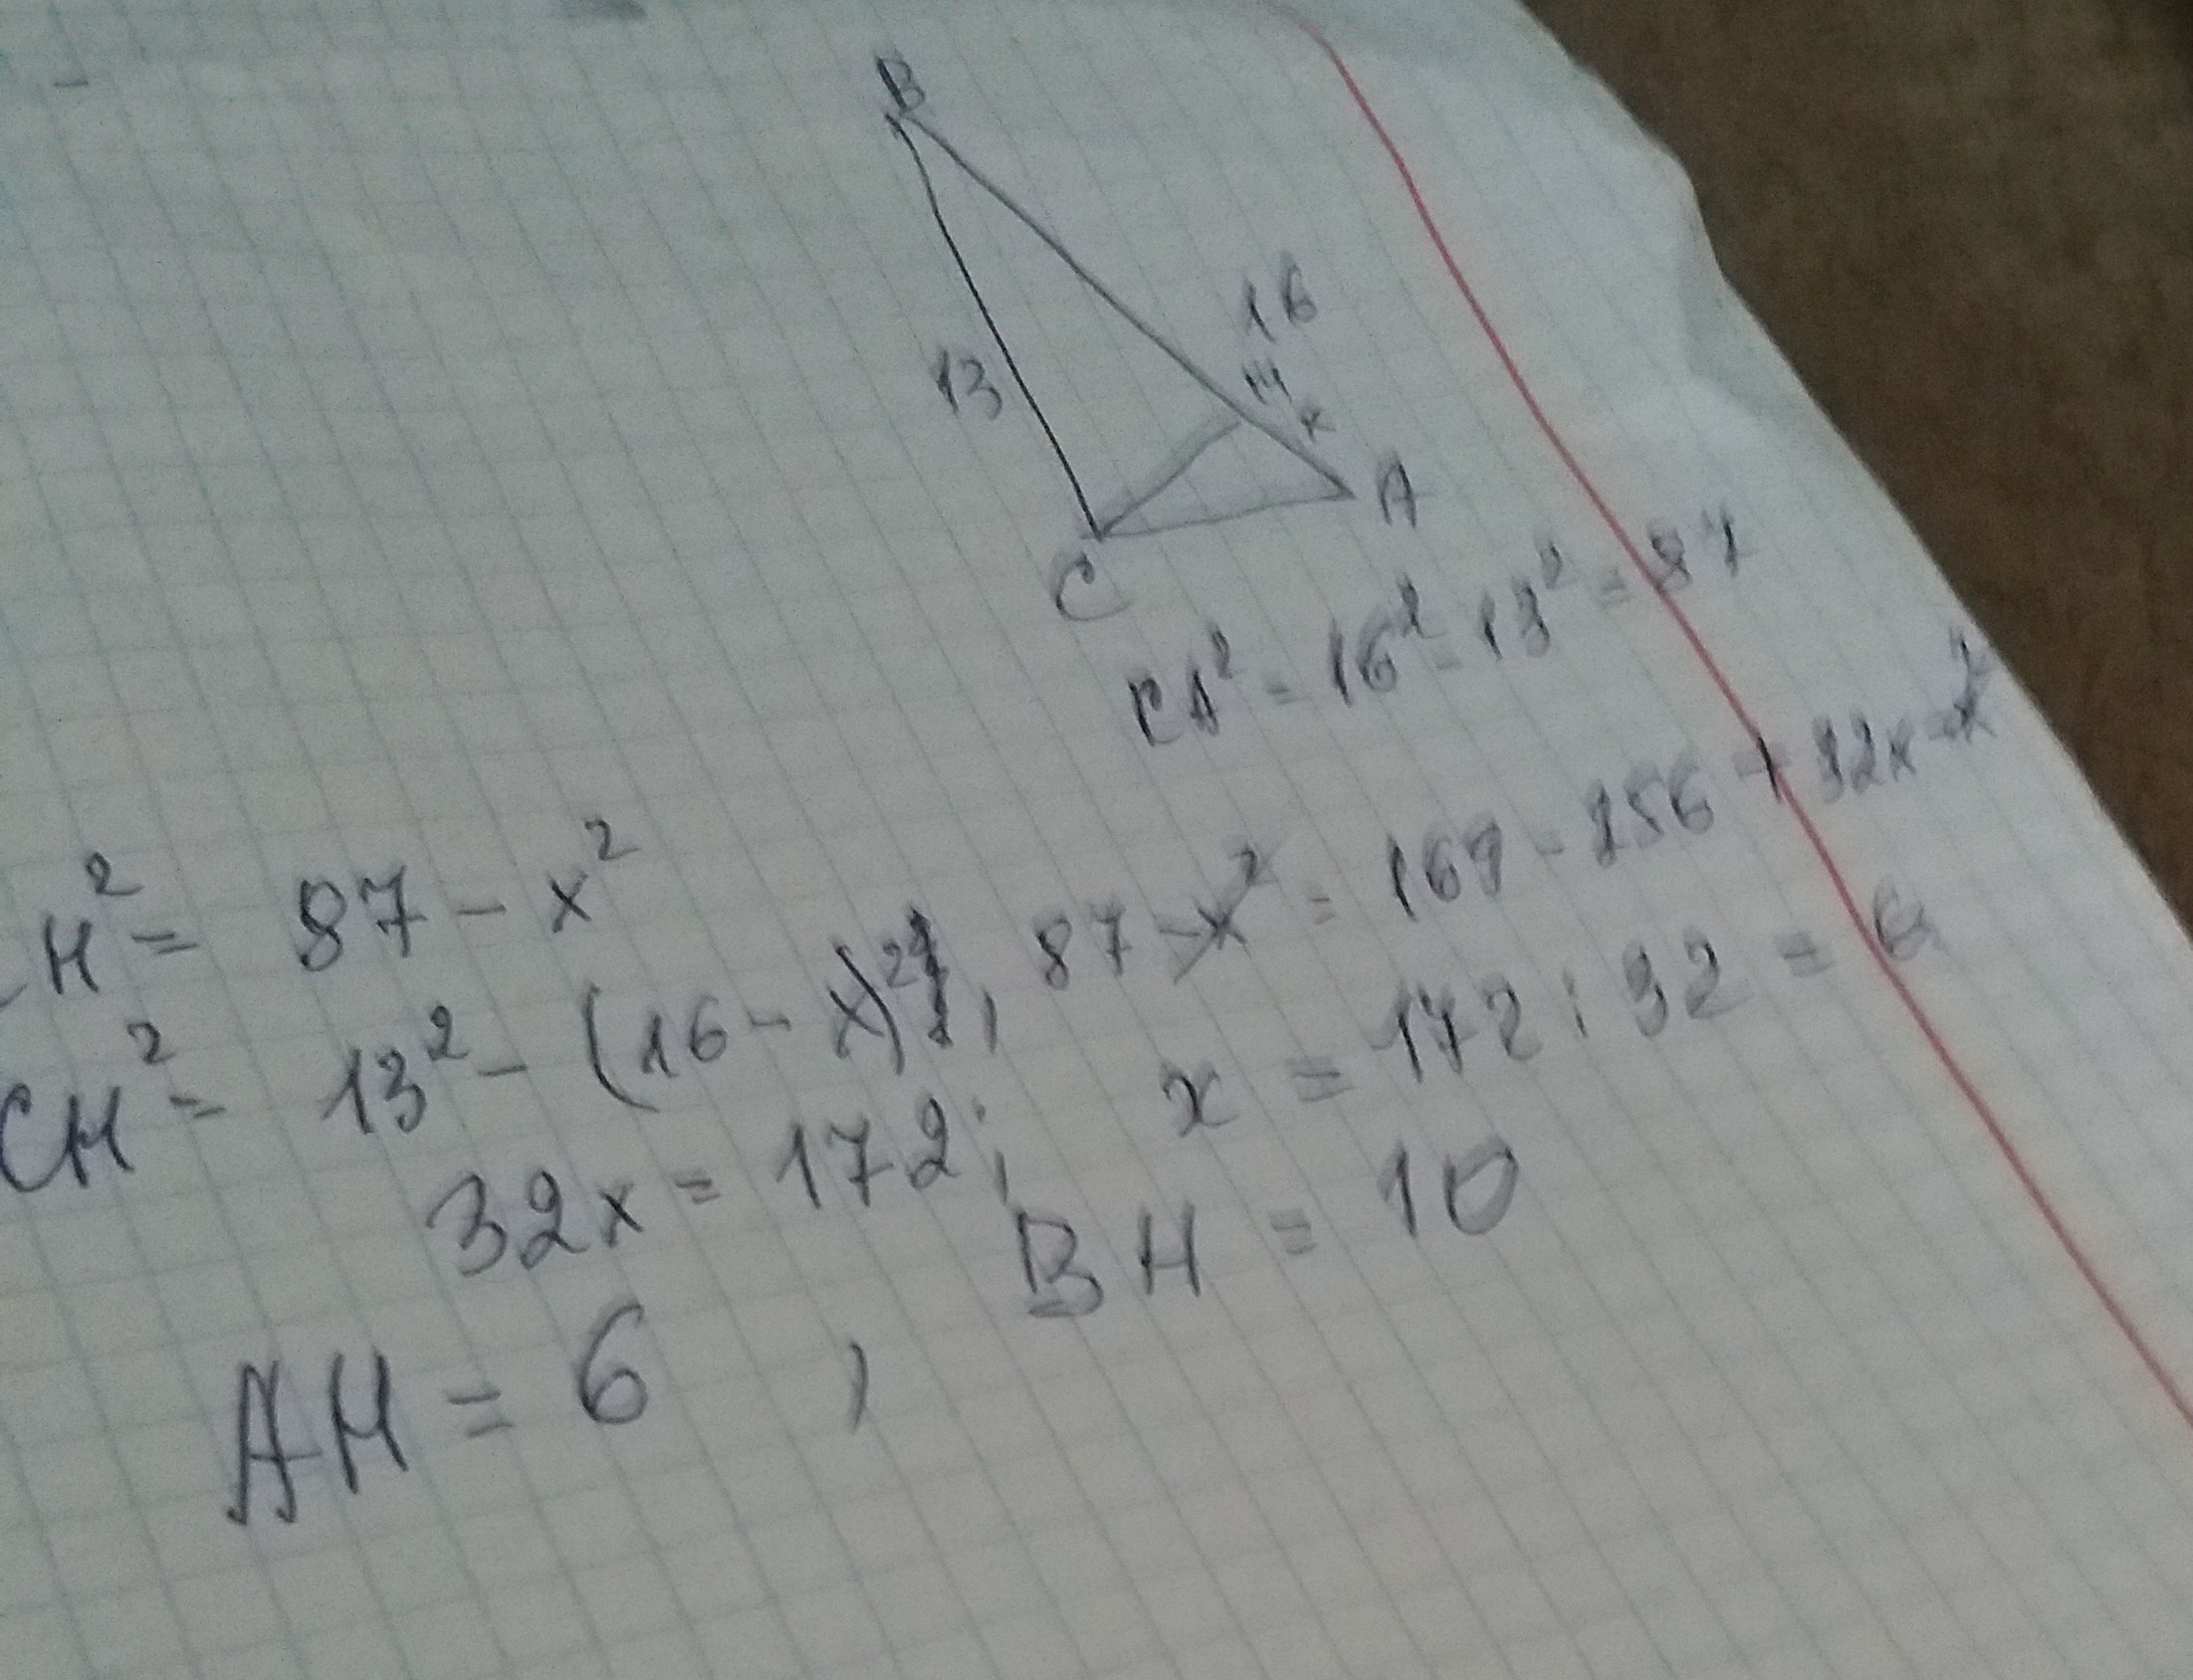 B
16
13
H
x
A
C
CA² = 16² - 13² = 87
H² = 87 - x²
CH² = 13² - (16 - x)², 87 - x² = 169 - 256 + 32x - x²
32x = 172; x = 172 : 32 = 6
AH = 6, BH = 10